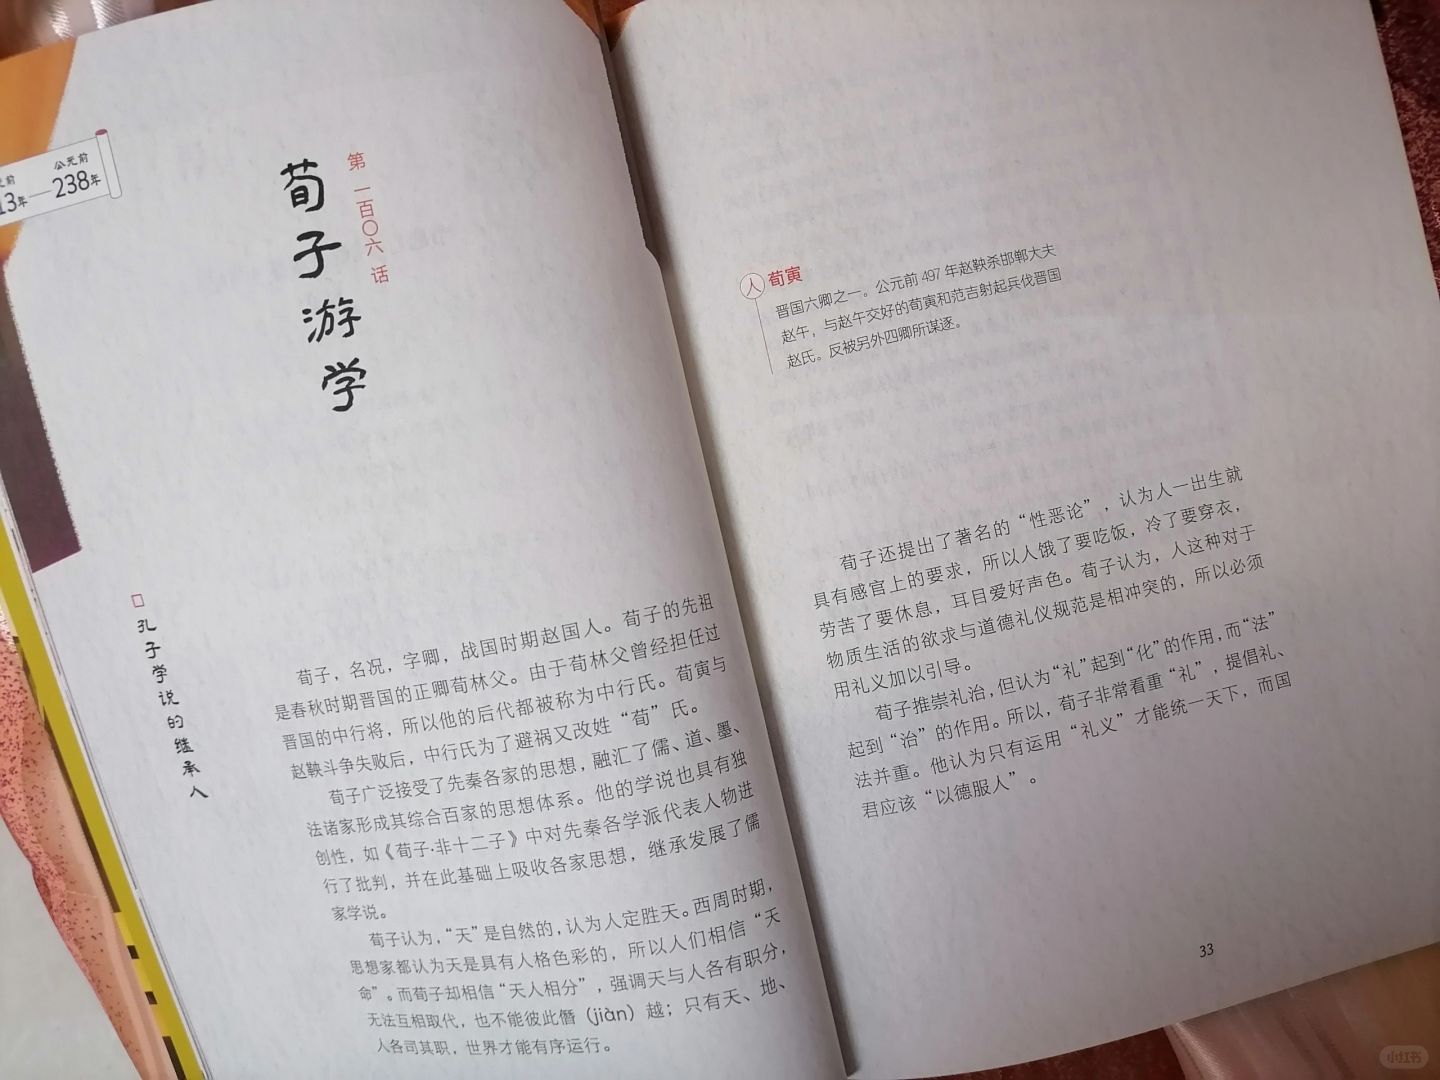 公元前
13年—238年
第一百〇六话
荀子游学
孔子学说的继承人
荀子，名况，字卿，战国时期赵国人。荀子的先祖
是春秋时期晋国的正卿荀林父。由于荀林父曾经担任过
晋国的中行将，所以他的后代都被称为中行氏。荀寅与
赵鞅斗争失败后，中行氏为了避祸又改姓“荀”氏。
荀子广泛接受了先秦各家的思想，融汇了儒、道、墨、
法诸家形成其综合百家的思想体系。他的学说也具有独
创性，如《荀子·非十二子》中对先秦各学派代表人物进
行了批判，并在此基础上吸收各家思想，继承发展了儒
家学说。
荀子认为，“天”是自然的，认为人定胜天。西周时期，
思想家都认为天是具有人格色彩的，所以人们相信“天
命”。而荀子却相信“天人相分”，强调天与人各有职分，
无法互相取代，也不能彼此僭（jiàn）越；只有天、地、
人各司其职，世界才能有序运行。
人 荀寅
晋国六卿之一。公元前497年赵鞅杀邯郸大夫
赵午，与赵午交好的荀寅和范吉射起兵伐晋国
赵氏。反被另外四卿所谋逐。
荀子还提出了著名的“性恶论”，认为人一出生就
具有感官上的要求，所以人饿了要吃饭，冷了要穿衣，
劳苦了要休息，耳目爱好声色。荀子认为，人这种对于
物质生活的欲求与道德礼仪规范是相冲突的，所以必须
用礼义加以引导。
荀子推崇礼治，但认为“礼”起到“化”的作用，而“法”
起到“治”的作用。所以，荀子非常看重“礼”，提倡礼、
法并重。他认为只有运用“礼义”才能统一天下，而国
君应该“以德服人”。
33
小红书